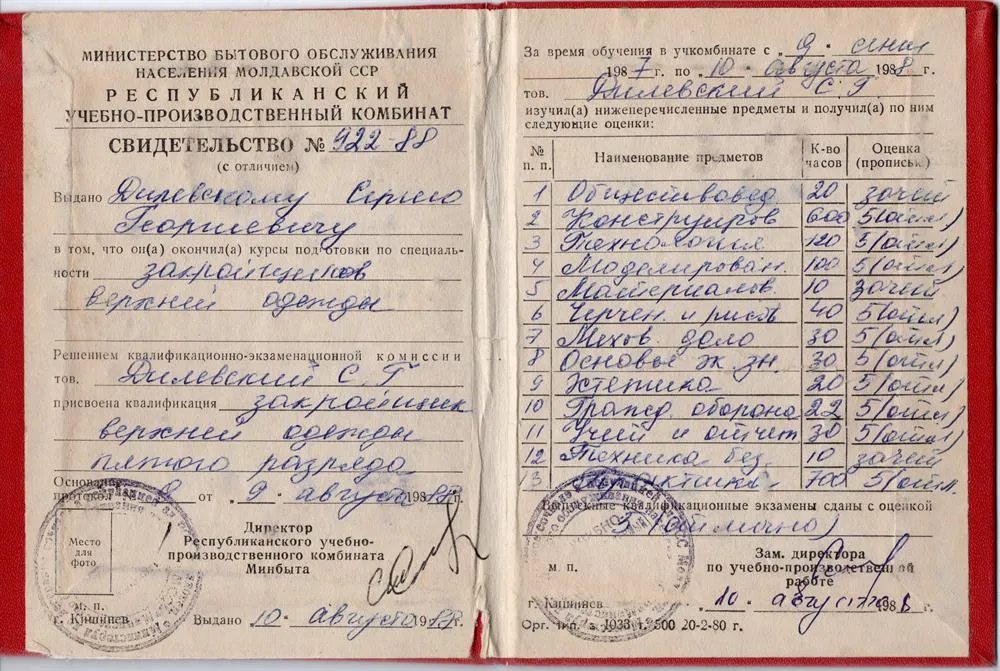 МИНИСТЕРСТВО БЫТОВОГО ОБСЛУЖИВАНИЯ
НАСЕЛЕНИЯ МОЛДАВСКОЙ ССР
РЕСПУБЛИКАНСКИЙ
УЧЕБНО-ПРОИЗВОДСТВЕННЫЙ КОМБИНАТ
СВИДЕТЕЛЬСТВО № 922-88
(с отличием)
Выдано Дилевскому Сергею
Георгиевичу
в том, что он(а) окончил(а) курсы подготовки по специаль-
ности закройщиков
верхней одежды
Решением квалификационно-экзаменационной комиссии
тов. Дилевский С.Г
присвоена квалификация закройщик
верхней одежды
пятого разряда
Основание
протокол от 9 августа 1988 г.
Место
для
фото
Директор
Республиканского учебно-
производственного комбината
Минбыта
м. п.
г. Кишинев Выдано 10 августа 1988 г.
За время обучения в учкомбинате с 9.
1987 г. по 10 августа 1988 г.
тов. Дилевский С.Г
изучил(а) нижеперечисленные предметы и получил(а) по ним
следующие оценки:
№ п. п. Наименование предметов К-во часов Оценка (прописью)
1 Обществовед 20 зачет
2 Конструиров 600 5(отл)
3 Технология 120 5(отл)
4 Моделирован. 100 5(отл)
5 Материалов 10 зачет
6 Черчен. и рисов 40 5(отл)
7 Мехов. дело 30 5(отл)
8 Основы эк. зн. 30 5(отл)
9 Эстетика 20 5(отл)
10 Гражд. оборона 22 5(отл)
11 Учет и отчет 30 5(отл)
12 Техника без. 10 зачет
13 Практика 700 5(отл.
Выпускные квалификационные экзамены сданы с оценкой
5 (отлично)
Зам. директора
м. п. по учебно-производственной
работе
г. Кишинев 10. августа 1988 г.
Орг. тип. з. 1033 т. 500 20-2-80 г.